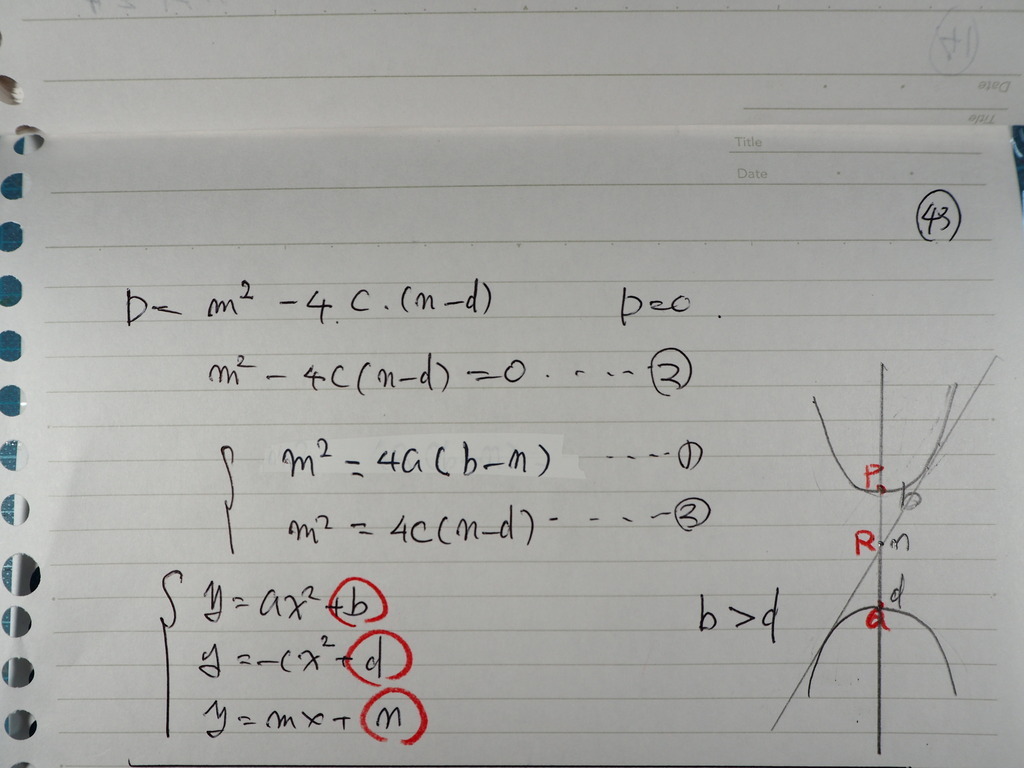 Title
Date
43
D = m² - 4.c.(n-d)   D=0.
m² - 4c(n-d) = 0 ..... ②
m² = 4a(b-n) ..... ①
m² = 4c(n-d) ..... ②
y = ax² + b
y = -cx² + d
y = mx + n
b > d
P
b
R n
d
Q